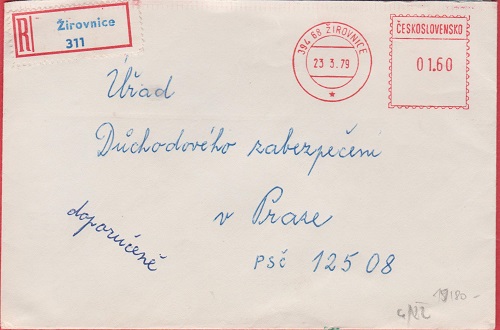 R
Žirovnice
311
394 68 ŽIROVNICE
23 3.79
ČESKOSLOVENSKO
01.60
Úřad
Důchodového zabezpečení
v Praze
PSČ 12508
doporučeně